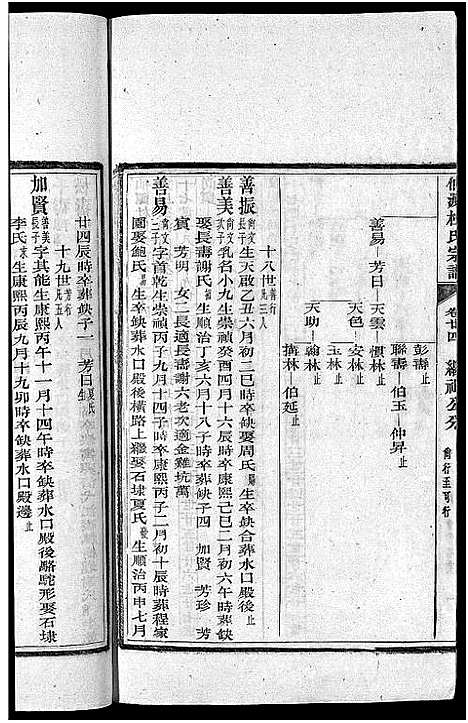 仙源杜氏宗譜
卷廿四
彭壽止
聯壽—伯玉—仲昇止
善易—芳曰—天雲—慣林止
天色—安林止
玉林止
天助—翰林止
摘林—伯延止
十八世善行兄三弟四
善振尚文長子生天啟乙丑六月初二巳時卒缺娶周氏生卒缺合葬水口殿後止
善美尚文次子乳名小九生崇禎癸酉四月十六辰時卒康熙己巳二月初六午時葬缺
娶長壽謝氏生順治丁亥六月十八子時卒葬缺子四 加賢 芳珍 芳
賓 芳明 女二長適長壽謝六老次適金雞坑萬
善易尚文三子字首乾生崇禎丙子九月十四子時卒康熙丙子二月初十辰時葬程家
園娶鮑氏葬水口殿後橫路上繼娶石埭夏氏生順治丙申七月
廿四辰時卒葬缺子一 芳曰夏氏生
十九世芳行兄五人
加賢善美長子字其能生康熙丙午十一月十四午時卒缺葬水口殿後駱駝形娶石埭
李氏生康熙丙辰九月十九卯時卒缺葬水口殿邊止